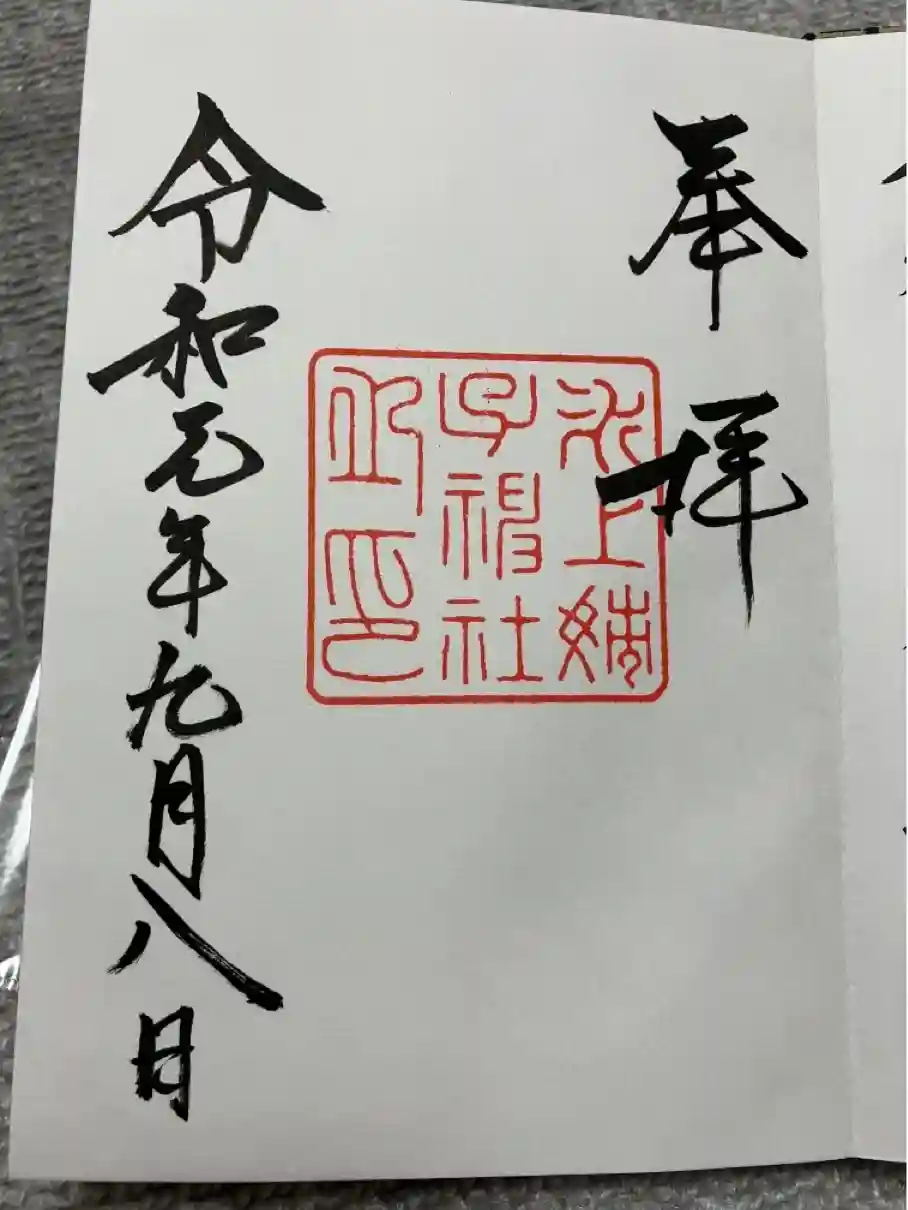 奉拝
氷上姉
子神社
之印
令和元年九月八日